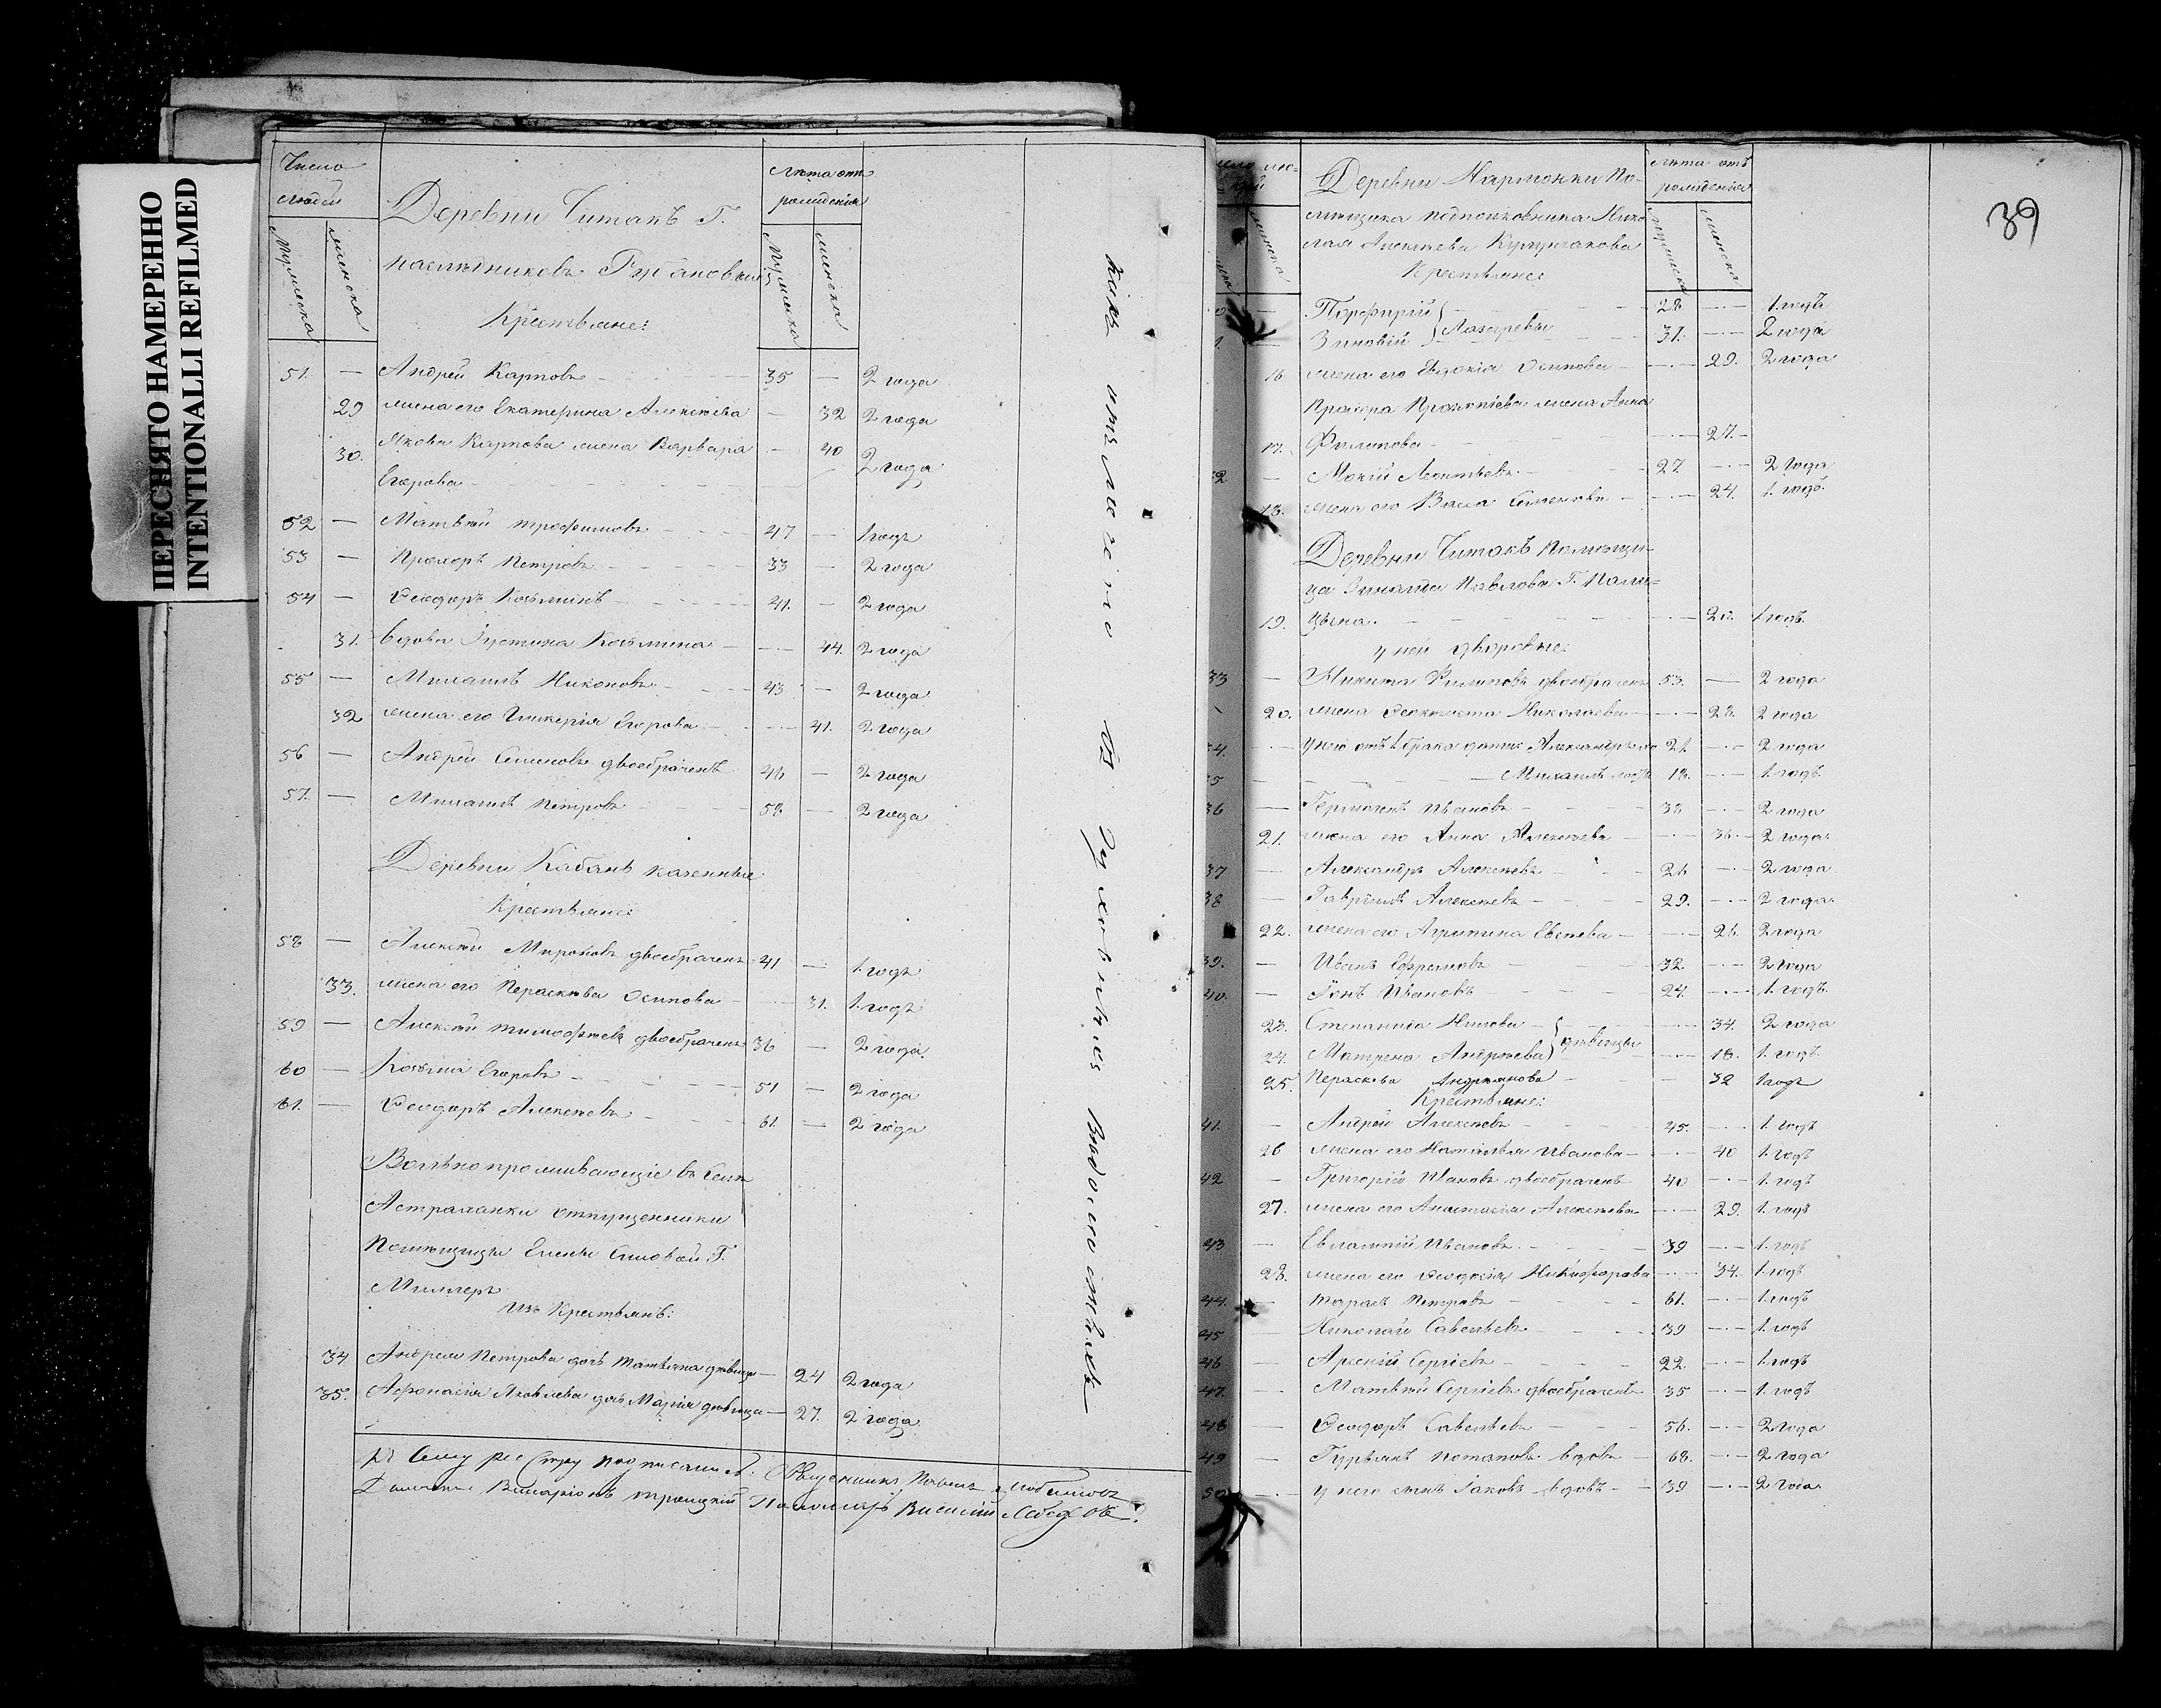 ПЕРЕСНЯТО НАМЕРЕННО
INTENTIONALLI REFILMED
Число людей
мужеска
женска
Деревни Читакъ Г.
наслѣдниковъ
Крестьяне:
лѣта отъ рожденія
мужеска
женска
51. — Андрей Карповъ — 35 — 2 года
29 жена его Екатерина Алексѣева — 32 2 года
30. Якова Карпова жена Варвара — 40 2 года
Егорова
52 — Матвѣй трофимовъ — 47 — 1 годъ
53 — Прохоръ Петровъ — 33 — 2 года
54 — Ѳеодоръ Козьминъ — 41. — 2 года
31. вдова Іустина Козьмина — 44. 2 года
55 — Михаилъ Никоновъ — 43 — 2 года
32 жена его Гликерія Егорова — 41. 2 года
56 — Андрей Семеновъ двоебраченъ 46 — 2 года
57. — Михаилъ Петровъ — 58 — 2 года
Деревни Кабанъ казенные
Крестьяне:
58 — Алексѣй Мироновъ двоебраченъ 41 — 1. годъ
33. жена его Пераскѣва Осипова — 31. 1. годъ
59 — Алексѣй тимофѣевъ двоебраченъ 36 — 2 года
60 — Козьма Егоровъ — 51 — 2 года
61. — Ѳеодоръ Алексѣевъ — 61. — 2 года
Вольно проживающіе въ Селѣ
Астраханки отпущенники
Помѣщицы Елены Г.
Миллеръ
изъ Крестьянъ:
34 Андрея Петрова дочь дѣвица — 24 2 года
35. Афонасія Яковлева дочь Марія дѣвица — 27. 2 года
Къ Сему реестру подписались: Священникъ
троицкій Пономарь Василій
какъ изъ числа
39
Деревни Нармонки По-
мѣщика подполковника Нико
лая Алексѣева
Крестьяне:
лѣта отъ рожденія
мужеска
женска
— Порфирій } — 28 — 1. годъ
— Зиновій } Лазаревы — 31. — 2 года
16 жена его Евдокія Осипова — 29. 2 года
Прохора Прокопіева жена Анна
17. Филипова — 27. —
52 — Мокій Леонтьевъ — 27. — 2 года
18. жена его Васса Семенова — 24. 1. годъ.
Деревни Читакъ помѣщи-
ца Павлова Г.
19. цына. — 1 годъ.
у ней дворовые:
33 — Никита Филиповъ двоебраченъ 53. — 2 года
20. жена Ѳеоктиста Николаева — 28. 2 года
34. у него отъ 1. брака дѣти Александръ 21 — 2 года
35 — Михаилъ 18. — 1. годъ.
36 — Гермогенъ Ивановъ — 38 — 2 года
21. жена его Анна Алексѣева — 36. 2 года
37 — Александръ Алексѣевъ — 26 — 2 года
38 — Гавріилъ Алексѣевъ — 29. — 2 года
22. жена его Агрипина — 26. 2 года
39. — Иванъ Ефремовъ — 32. — 2 года
40. — Іонъ Ивановъ — 24. — 1. годъ.
23. Степанида — 34. 2 года
24. Матрена Андрѣева } дѣвицы — 18. 1. годъ
25. Пераскѣва Андреянова — 32 1 годъ
Крестьяне:
41. — Андрей Алексѣевъ — 45. — 1. годъ
26 жена его Наталья Иванова — 40 1. годъ
42 — Григорій Ивановъ двоебраченъ 40 — 1. годъ
27. жена его Анастасія Алексѣева — 29. 1. годъ
43 — Евлампій Ивановъ — 39 — 1. годъ
28. жена его Ѳеодосія Никифорова — 34. 1. годъ
44. — тарасъ Петровъ — 61. — 1. годъ
45 — Николай Савельевъ — 39 — 1. годъ
46 — Арсеній Сергіевъ — 22. — 1. годъ
47. — Матвѣй Сергіевъ двоебраченъ 35 — 1. годъ
48 — Ѳеодоръ Савельевъ — 56. — 2 года
49 — Гурьянъ Потаповъ вдовъ — 68. — 2 года
50 — у него сынъ Іаковъ вдовъ — 39 — 2 года